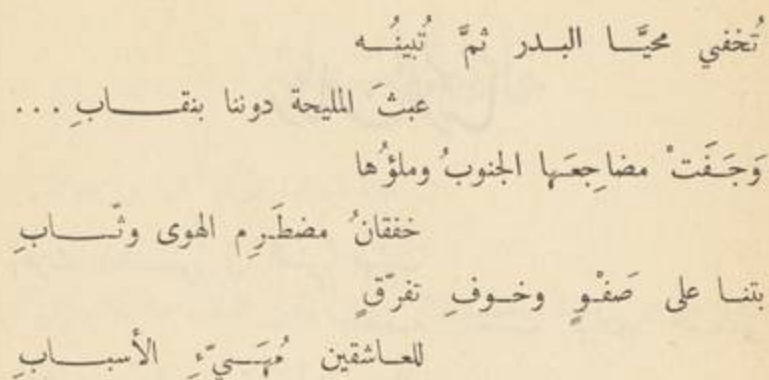 تُخفي محيَّا البدر ثمَّ تُبينُه
عبثَ المليحة دوننا بنقابِ ...
وَجَفَتْ مضاجعَها الجنوبُ وملؤُها
خفقانُ مضطَرِم الهوى وثّابِ
بتنا على صَفْوٍ وخوفِ تفرّقٍ
للعاشقين مُهَيّءِ الأسبابِ